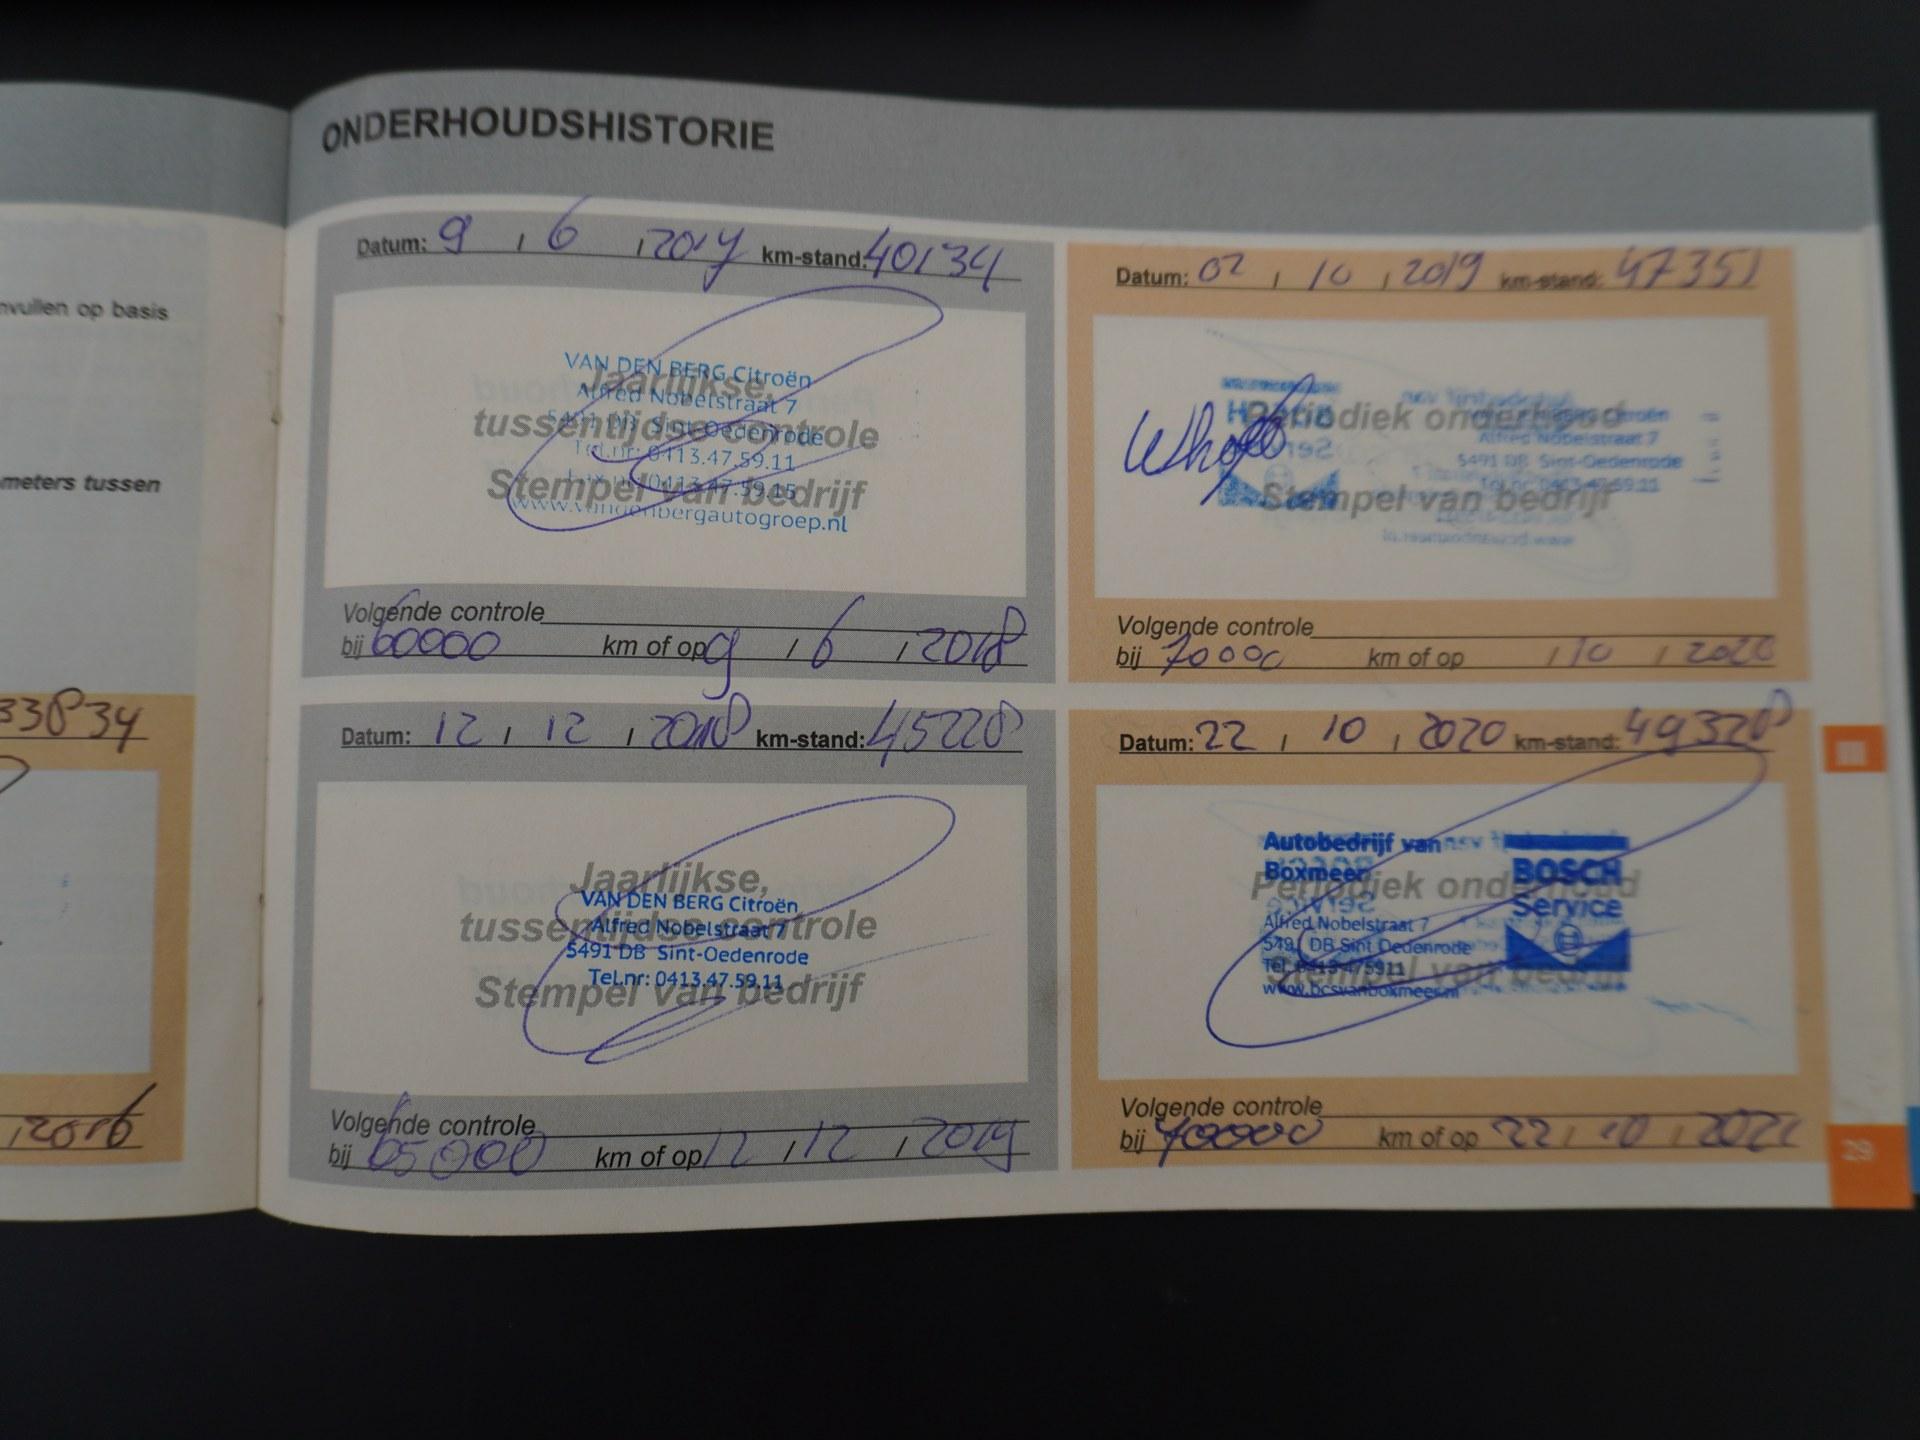 ONDERHOUDSHISTORIE
nvullen op basis
meters tussen
33834
2016
Datum: 9 / 6 / 2017 km-stand: 40134
Jaarlijkse,
tussentijdse controle
Stempel van bedrijf
VAN DEN BERG Citroën
Alfred Nobelstraat 7
5491 DB Sint-Oedenrode
Tel.nr: 0413.47.59.11
Fax nr: 0413.47.59.15
www.vandenbergautogroep.nl
Volgende controle
bij 60000 km of op 9 / 6 / 2018
Datum: 12 / 12 / 2018 km-stand: 45228
Jaarlijkse,
tussentijdse controle
Stempel van bedrijf
VAN DEN BERG Citroën
Alfred Nobelstraat 7
5491 DB Sint-Oedenrode
Tel.nr: 0413.47.59.11
Volgende controle
bij 65000 km of op 12 / 12 / 2019
Datum: 02 / 10 / 2019 km-stand: 47351
Periodiek onderhoud
Stempel van bedrijf
Citroën
Alfred Nobelstraat 7
5491 DB Sint-Oedenrode
Tel.nr: 0413.47.59.11
Volgende controle
bij 70000 km of op / 10 / 2020
Datum: 22 / 10 / 2020 km-stand: 49328
Periodiek onderhoud
Stempel van bedrijf
Autobedrijf van
Boxmeer
Alfred Nobelstraat 7
5491 DB Sint Oedenrode
Tel. 0413-475911
www.bcsvanboxmeer.nl
BOSCH
Service
Volgende controle
bij 70000 km of op 22 / 10 / 2021
29